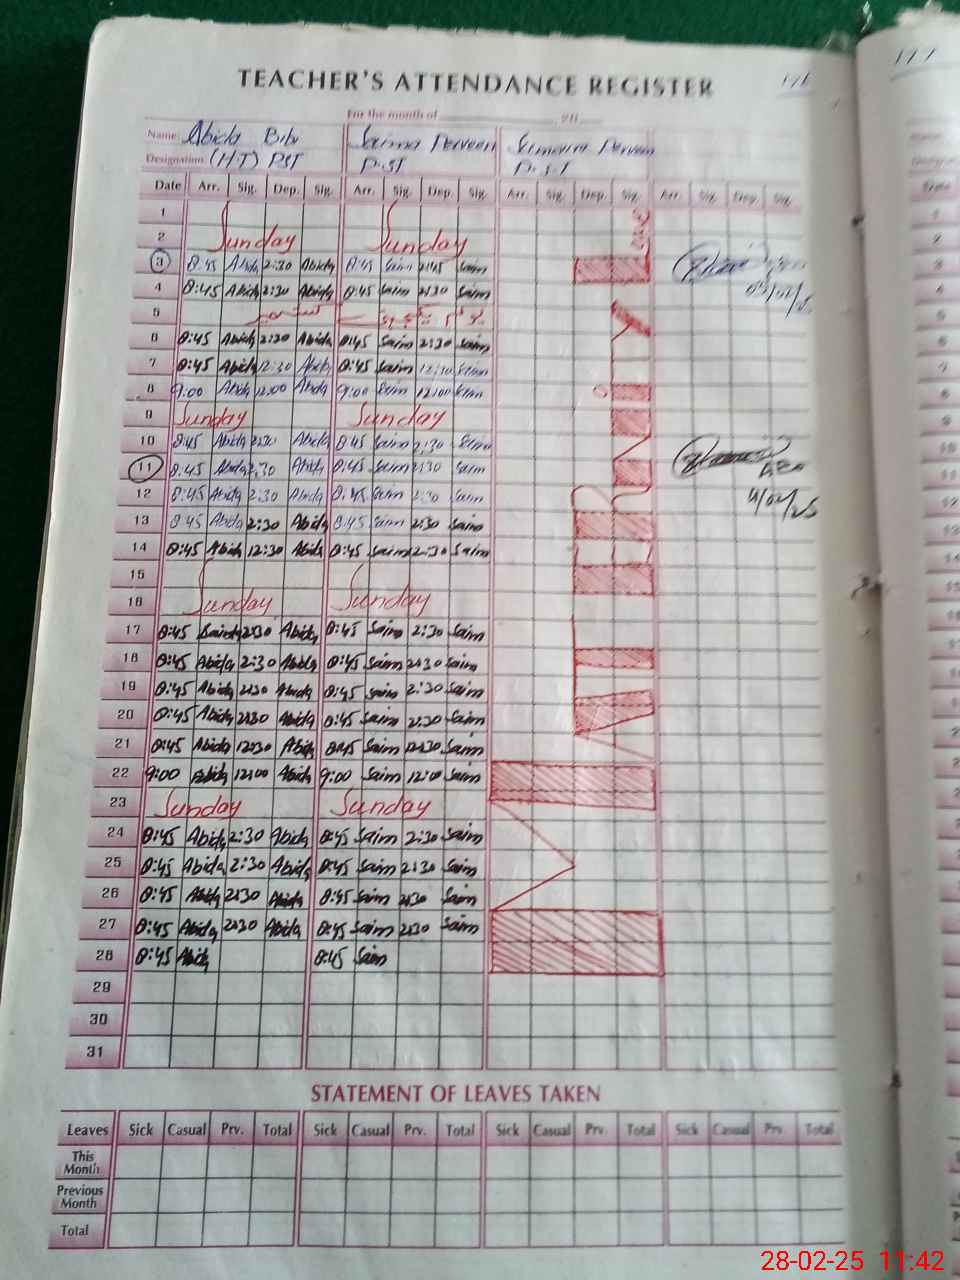 TEACHER'S ATTENDANCE REGISTER
For the month of 20
Name: Abida Bibi Saima Perveen Sumaira Perveen
Designation: (HT) PST P.ST P.S.T
Date Arr. Sig. Dep. Sig. Arr. Sig. Dep. Sig. Arr. Sig. Dep. Sig. Arr. Sig. Dep. Sig.
1
2 Sunday Sunday
3 8:45 Abida 2:30 Abida 8:45 Saim 2:45 Saim
4 8:45 Abida 2:30 Abida 8:45 Saim 2:30 Saim
5
6 8:45 Abida 2:30 Abida 8:45 Saim 2:30 Saim
7 8:45 Abida 12:30 Abida 8:45 Saim 12:30 Saim
8 9:00 Abida 12:00 Abida 9:00 Saim 12:00 Saim
9 Sunday Sunday
10 8:45 Abida 2:30 Abida 8:45 Saim 2:30 Saim
11 8:45 Abida 2:30 Abida 8:45 Saim 2:30 Saim
12 8:45 Abida 2:30 Abida 8:45 Saim 2:30 Saim
13 8:45 Abida 2:30 Abida 8:45 Saim 2:30 Saim
14 8:45 Abida 12:30 Abida 8:45 Saim 12:30 Saim
15
16 Sunday Sunday
17 8:45 2:30 Abida 8:45 Saim 2:30 Saim
18 8:45 Abida 2:30 Abida 8:45 Saim 2:30 Saim
19 8:45 Abida 2:30 Abida 8:45 Saim 2:30 Saim
20 8:45 Abida 2:30 Abida 8:45 Saim 2:30 Saim
21 8:45 Abida 12:30 Abida 8:45 Saim 12:30 Saim
22 9:00 Abida 12:00 Abida 9:00 Saim 12:00 Saim
23 Sunday Sunday
24 8:45 Abida 2:30 Abida 8:45 Saim 2:30 Saim
25 8:45 Abida 2:30 Abida 8:45 Saim 2:30 Saim
26 8:45 Abida 2:30 Abida 8:45 Saim 2:30 Saim
27 8:45 Abida 2:30 Abida 8:45 Saim 2:30 Saim
28 8:45 Abida 8:45 Saim
29
30
31
MATERNITY Leave
STATEMENT OF LEAVES TAKEN
Leaves Sick Casual Prv. Total Sick Casual Prv. Total Sick Casual Prv. Total Sick Casual Prv. Total
This Month
Previous Month
Total
28-02-25 11:42